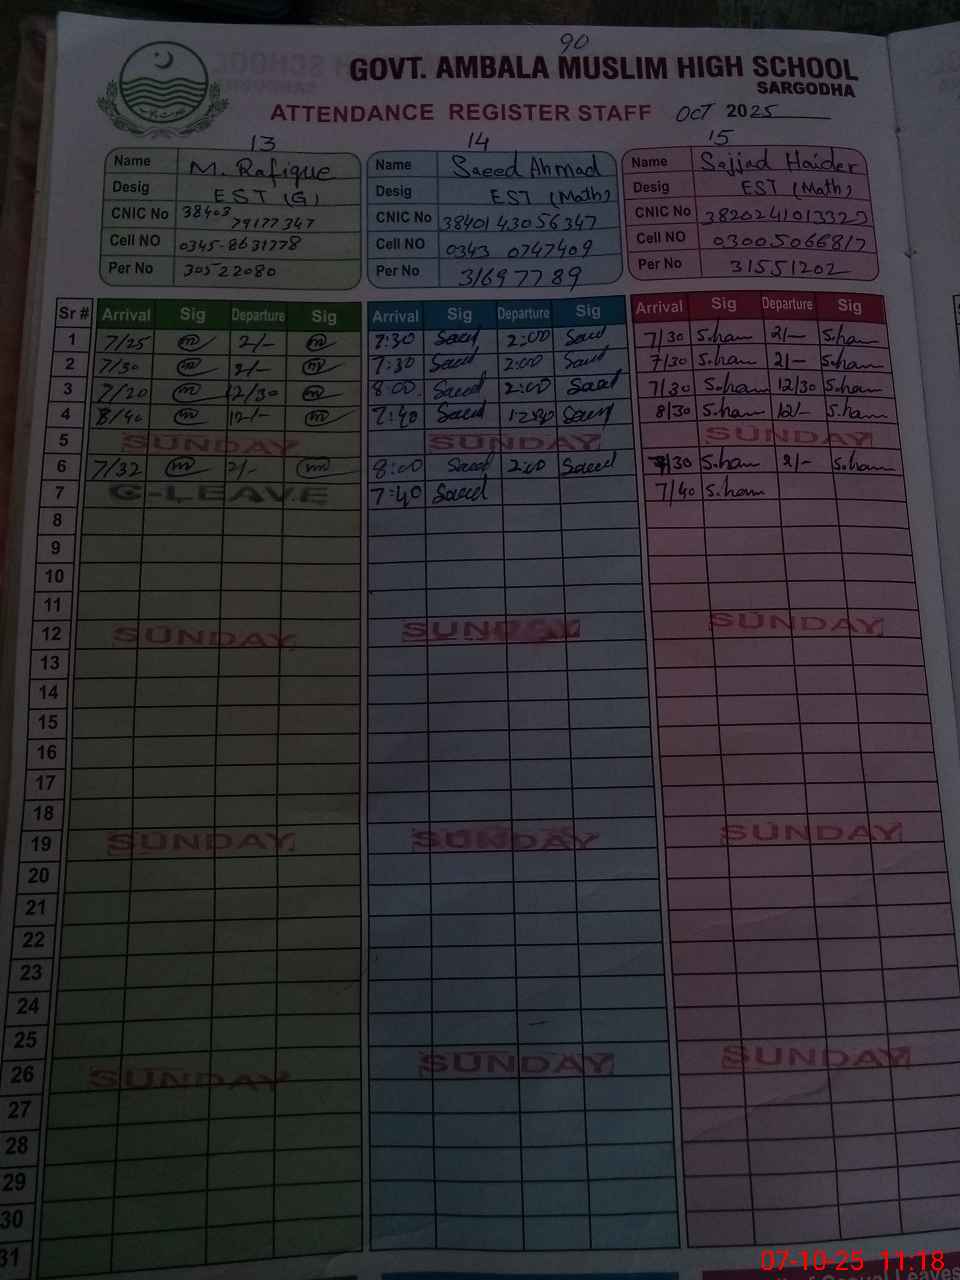 90
GOVT. AMBALA MUSLIM HIGH SCHOOL
SARGODHA
ATTENDANCE REGISTER STAFF OCT 2025
13 14 15
Name M. Rafique Name Saeed Ahmad Name Sajjad Haider
Desig EST (G) Desig EST (Math) Desig EST (Math)
CNIC No 38403 79177347 CNIC No 3840143056347 CNIC No 3820241013323
Cell NO 0345-8631778 Cell NO 0343 0747409 Cell NO 03005066817
Per No 30522080 Per No 31697789 Per No 31551202
Sr # Arrival Sig Departure Sig Arrival Sig Departure Sig Arrival Sig Departure Sig
1 7/25 m 2/- m 7:30 Saeed 2:00 Saeed 7/30 S.ham 2/- S.ham
2 7/30 m 2/- m 7:30 Saeed 2:00 Saeed 7/30 S.ham 2/- S.ham
3 7/20 m 12/30 m 8:00 Saeed 2:00 Saeed 7/30 S.ham 12/30 S.ham
4 8/40 m 12/- m 7:40 Saeed Saeed 8/30 S.ham 12/- S.ham
5 SUNDAY SUNDAY SUNDAY
6 7/32 m 2/- m 8:00 Saeed 2:00 Saeed 7/30 S.ham 2/- S.ham
7 C-LEAVE 7:40 Saeed 7/40 S.ham
8
9
10
11
12 SUNDAY SUNDAY SUNDAY
13
14
15
16
17
18
19 SUNDAY SUNDAY SUNDAY
20
21
22
23
24
25
26 SUNDAY SUNDAY SUNDAY
27
28
29
30
31
07-10-25 11:18
Leaves